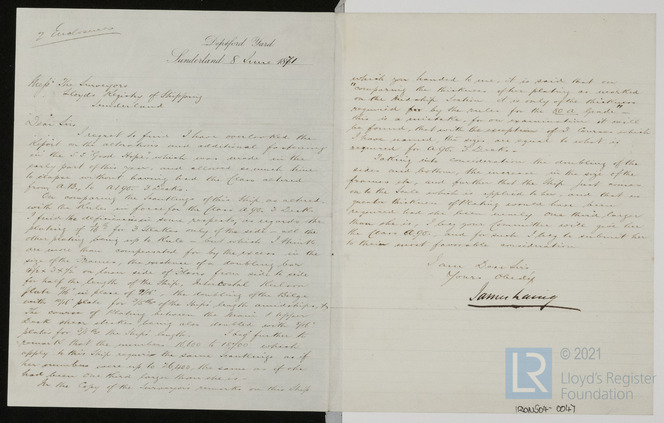 2 Enclosures
Deptford Yard
Sunderland 8 June 1871
Messrs The Surveyors
Lloyds Register of Shipping
Sunderland
Dear Sirs
I regret to find I have overlooked the
Report on the alterations and additional fastening
in the S.S. Good Hope which was made in the
early part of this year, and allowed so much time
to elapse without having had the Class altered
from to 3 Decks.
On comparing the scantlings of this ship as altered
with the Rules in force for the Class 3 Decks
I find in some respects, as regards the
plating of for 3 Strakes only of the side - all the
other plating being up to Rule - but which I think
are more than compensated for by the excess in the
size of the Frames, the existence of a doubling
on lower side of Floors from side to side
for half the length of the Ship, Intercostal Keelson
plate in place of the doubling of the Bilge
with plate for of the Ships length amidships,
The course of Plating between the Main & Upper
Deck sheer strakes being also double with
plates for the Ships length. I beg further to
remark that the numbers to which
apply to this Ship require the same scantlings as if
her numbers were up to the same as if she
had been one third larger than she is.
In the Copy of the Surveyors remarks on this Ship
which you handed to me, it is said that on
"comparing the thickness of her plating as marked
on the Midship Section it is only of the thickness
required by the rules for the Grade -
this is a mistake, for on examination it will
be found, that with the exception of 3 Courses which
I have named the sizes are equal to what is
required for 3 Decks.
Taking into consideration the doubling of the
sides and bottom, the increase in the size of the
frames &c, and further that the Ship just comes
on to the Scale which is applied to her, and that no
greater thickness of Plating would have been
required had she been nearly one third larger
than she is, I beg your Committee will give her
the Class and for such I beg to submit her
to their most favorable consideration
I am Dear Sirs
Yours Obedtly
James Laing
© 2021
LR
Lloyd's Register
Foundation
IRON504-0047